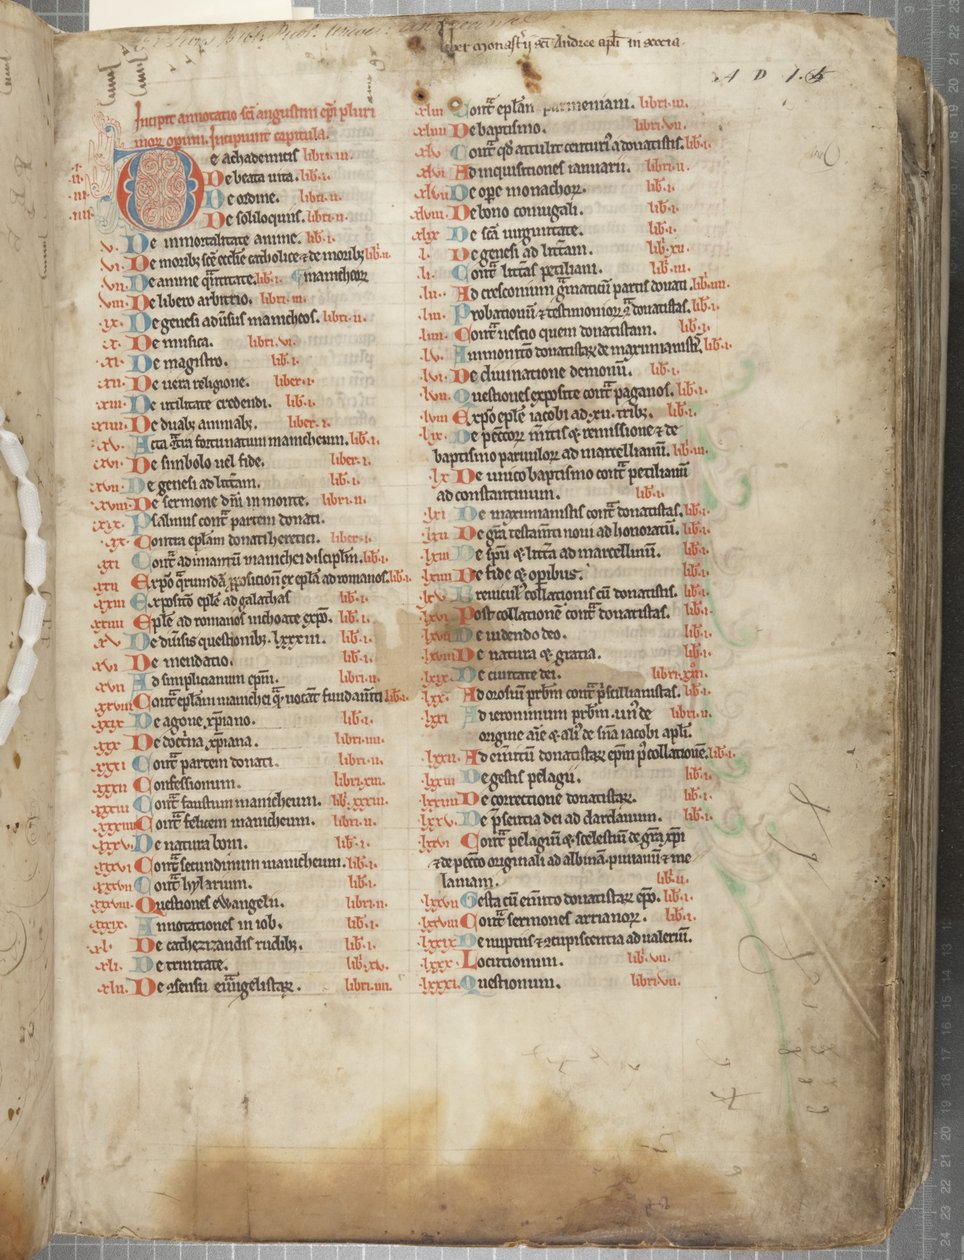 Liber monasterii sci Andree apli in scocia.
A D 1.
Incipit annotatio sci augustini epi pluri
mor opum. Incipiunt capitula.
De achademicis libri .iii.
.ii. De beata uita. lib .i.
.iii. De ordine. libri .ii.
.iiii. De soliloquiis. libri .ii.
.v. De inmortalitate anime. lib .i.
.vi. De morib; scē ecctie catholice & de morib; lib .ii.
.vii. De anime q̄ntitate. lib .i. manicheor
.viii. De libero arbitrio. libri .iii.
.ix. De genesi aduˀsus manicheos. libri .ii.
.x. De musica. libri .vi.
.xi. De magistro. lib .i.
.xii. De uera religione. liber .i.
.xiii. De utilitate credendi. lib .i.
.xiiii. De duab; animab; liber .i.
.xv. Acta ꝯtra fortunatum manicheum. lib .i.
.xvi. De simbolo uel fide. liber .i.
.xvii. De genesi ad litt̄am. lib .i.
.xviii. De sermone dn̄i in monte. libri .ii.
.xix. Psalmus cont̄ partem donati.
.xx. Contra epl̄am donati heretici. liber .i.
.xxi Cont̄ adimantū manichei discipl̄m. lib .i.
.xxii Expo q̄rundā ꝓpositionū ex epl̄a ad romanos. lib .i.
.xxiii Expositio epl̄e ad galathas lib .i.
.xxiiii Epl̄e ad romanos inchoate expo. lib .i.
.xxv De diuˀsis questionib; .lxxxiii. lib .i.
.xxvi De mendatio. lib .i.
.xxvii Ad simplicianum epm̄. libri .ii.
.xxviii Cont̄ epl̄am manichei q̄ uocant fundam̄ti lib .i.
.xxix De agone xp̄iano. lib .i.
.xxx De doct̄na xp̄iana. libri .iiii.
.xxxi Cont̄ partem donati. libri .ii.
.xxxii Confessionum. libri .xiii.
.xxxiii Cont̄ faustum manicheum. lib .xxxiii.
.xxxiiii Cont̄ felicem manicheum. libri .ii.
.xxxv. De natura boni. lib .i.
.xxxvi Cont̄ secundinum manicheum. lib .i.
.xxxvii Cont̄ hylarum. lib .i.
.xxxviii. Questiones ewangelii. libri .ii.
.xxxix. Annotationes in iob. lib .i.
.xl. De cathezizandis rudib; lib .i.
.xli. De trinitate. lib .xv.
.xlii. De ꝯsensu euangelistaꝝ. libri .iiii.
.xliii Cont̄ epl̄am parmeniani. libri .iii.
.xliiii De baptismo. libri .vii.
.xlv. Cont̄ qd attulit centuri a donatistis. lib .i.
.xlvi Ad inquisitiones ianuarii. libri .ii.
.xlvii De ope monachoꝝ. lib .i.
.xlviii. De bono coniugali. lib .i.
.xlix De scā uirginitate. lib .i.
.l. De genesi ad litt̄am. lib .xii.
.li. Cont̄ litt̄as petiliani. lib .iii.
.lii. Ad cresconium g̃maticū partis donati. lib .iiii.
.liii. Probationū & testimonioꝝ ꝯ donatistas. lib .i.
.liiii. Cont̄ nescio quem donatistam. lib .i.
.lv. Ammonitio donatistaꝝ de maximianistis. lib .i.
.lvi. De diuinatione demonū. lib .i.
.lvii Questiones exposite cont̄ paganos. lib .i.
.lviii Expo epl̄e iacobi ad .xii. trib; lib .i.
.lix. De peccatoꝝ mˀitis & remissione & de
baptismo paruuloꝝ ad marcellianū. lib .iii.
.lx De unico baptismo cont̄ petilianū
ad constantinum. lib .i.
.lxi De maximianistis cont̄ donatistas. lib .i.
.lxii De gr̄a testam̄ti noui ad honoratū. lib .i.
.lxiii De spū & litt̄a ad marcellinū. lib .i.
.lxiiii De fide & opib; lib .i.
.lxv. Breuiculˀ collationis cū donatistis. lib .i.
.lxvi Post collationē cont̄ donatistas. lib .i.
.lxvii De uidendo deo. lib .i.
.lxviii De natura & gratia. lib .i.
.lxix De ciuitate dei. libri .xxii.
.lxx. Ad orosiū prb̄m cont̄ pˀscillianistas. lib .i.
.lxxi. Ad ieronimum prb̄m .un̄ de libri .ii.
origine aīe & aliˀ de sn̄ia iacobi apli.
.lxxii Ad emˀitū donatistaꝝ epm̄ p̄ collationē. lib .i.
.lxxiii De gestis pelagii. lib .i.
.lxxiiii De correctione donatistaꝝ. lib .i.
.lxxv. De p̄sentia dei ad dardanum. lib .i.
.lxxvi Cont̄ pelagiū & celestiū de gr̄a xp̄i
& de pecc̄o originali ad albinā. pinianū & me
laniam. lib .ii.
.lxxvii Gesta cū emˀito donatistaꝝ epo. lib .i.
.lxxviii Cont̄ sermones arrianoꝝ. lib .i.
.lxxix De nuptiis & ꝯcupiscentia ad ualeriū.
.lxxx. Locutionum. lib .vii.
.lxxxi. Questionum. libri .vii.